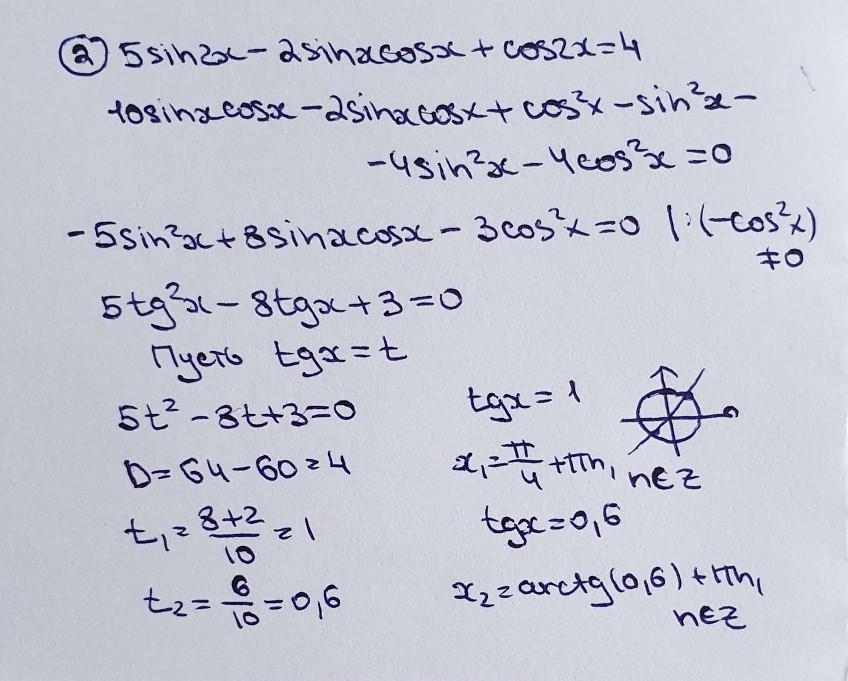 ② 5sin2x - 2sinxcosx + cos2x = 4
10sinxcosx - 2sinxcosx + cos²x - sin²x -
- 4sin²x - 4cos²x = 0
- 5sin²x + 8sinxcosx - 3cos²x = 0 | : (-cos²x)
≠0
5tg²x - 8tgx + 3 = 0
Пусть tgx = t
5t² - 8t + 3 = 0
D = 64 - 60 = 4
t₁ = (8+2)/10 = 1
t₂ = 6/10 = 0,6
tgx = 1
x₁ = π/4 + πn, n∈Z
tgx = 0,6
x₂ = arctg(0,6) + πn,
n∈Z